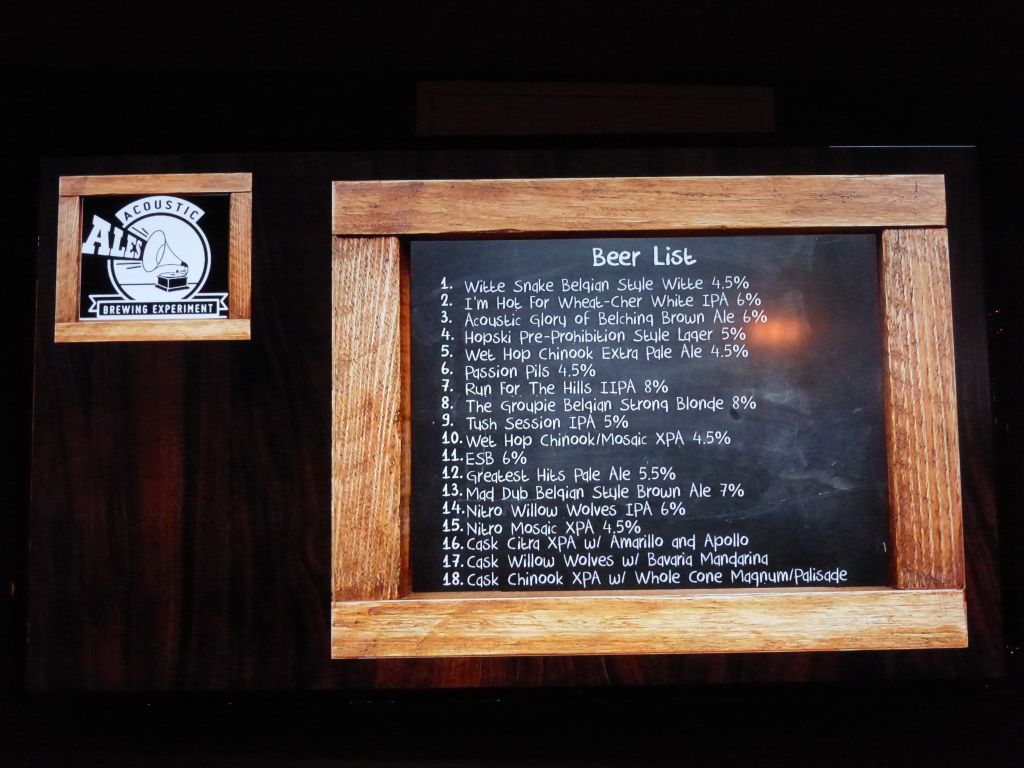 ACOUSTIC
ALES
BREWING EXPERIMENT
Beer List
1. Witte Snake Belgian Style Witte 4.5%
2. I'm Hot For Wheat-Cher White IPA 6%
3. Acoustic Glory of Belching Brown Ale 6%
4. Hopski Pre-Prohibition Style Lager 5%
5. Wet Hop Chinook Extra Pale Ale 4.5%
6. Passion Pils 4.5%
7. Run For The Hills IIPA 8%
8. The Groupie Belgian Strong Blonde 8%
9. Tush Session IPA 5%
10. Wet Hop Chinook/Mosaic XPA 4.5%
11. ESB 6%
12. Greatest Hits Pale Ale 5.5%
13. Mad Dub Belgian Style Brown Ale 7%
14. Nitro Willow Wolves IPA 6%
15. Nitro Mosaic XPA 4.5%
16. Cask Citra XPA w/ Amarillo and Apollo
17. Cask Willow Wolves w/ Bavaria Mandarina
18. Cask Chinook XPA w/ Whole Cone Magnum/Palisade